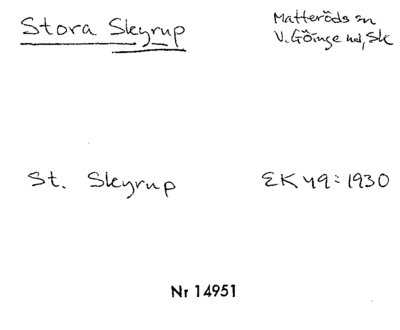 Stora Skyrup
Matteröds sn
V. Göinge hd, Sk
St. Skyrup
EK 49:1930
Nr 14951